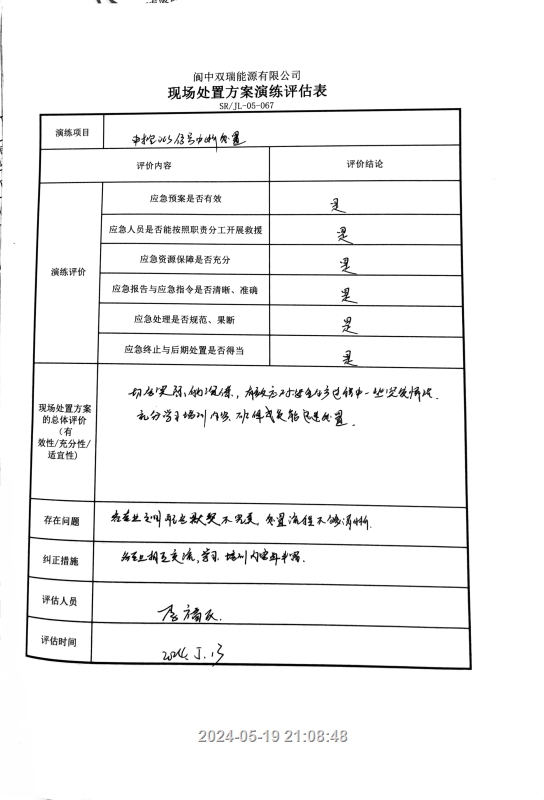 阆中双瑞能源有限公司
现场处置方案演练评估表
SR/JL-05-067
演练项目 中控DCS信号中断处置
评价内容 评价结论
演练评价
应急预案是否有效 是
应急人员是否能按照职责分工开展救援 是
应急资源保障是否充分 是
应急报告与应急指令是否清晰、准确 是
应急处理是否规范、果断 是
应急终止与后期处置是否得当 是
现场处置方案
的总体评价
（有
效性/充分性/
适宜性)
切合实际的 过程中一些突发情况.
充分学习培训内容 处置.
存在问题 各专业之间配合默契不完美，处置流程不够清晰.
纠正措施 相互交流，学习培训内容
评估人员
评估时间 2024.5.13
2024-05-19 21:08:48